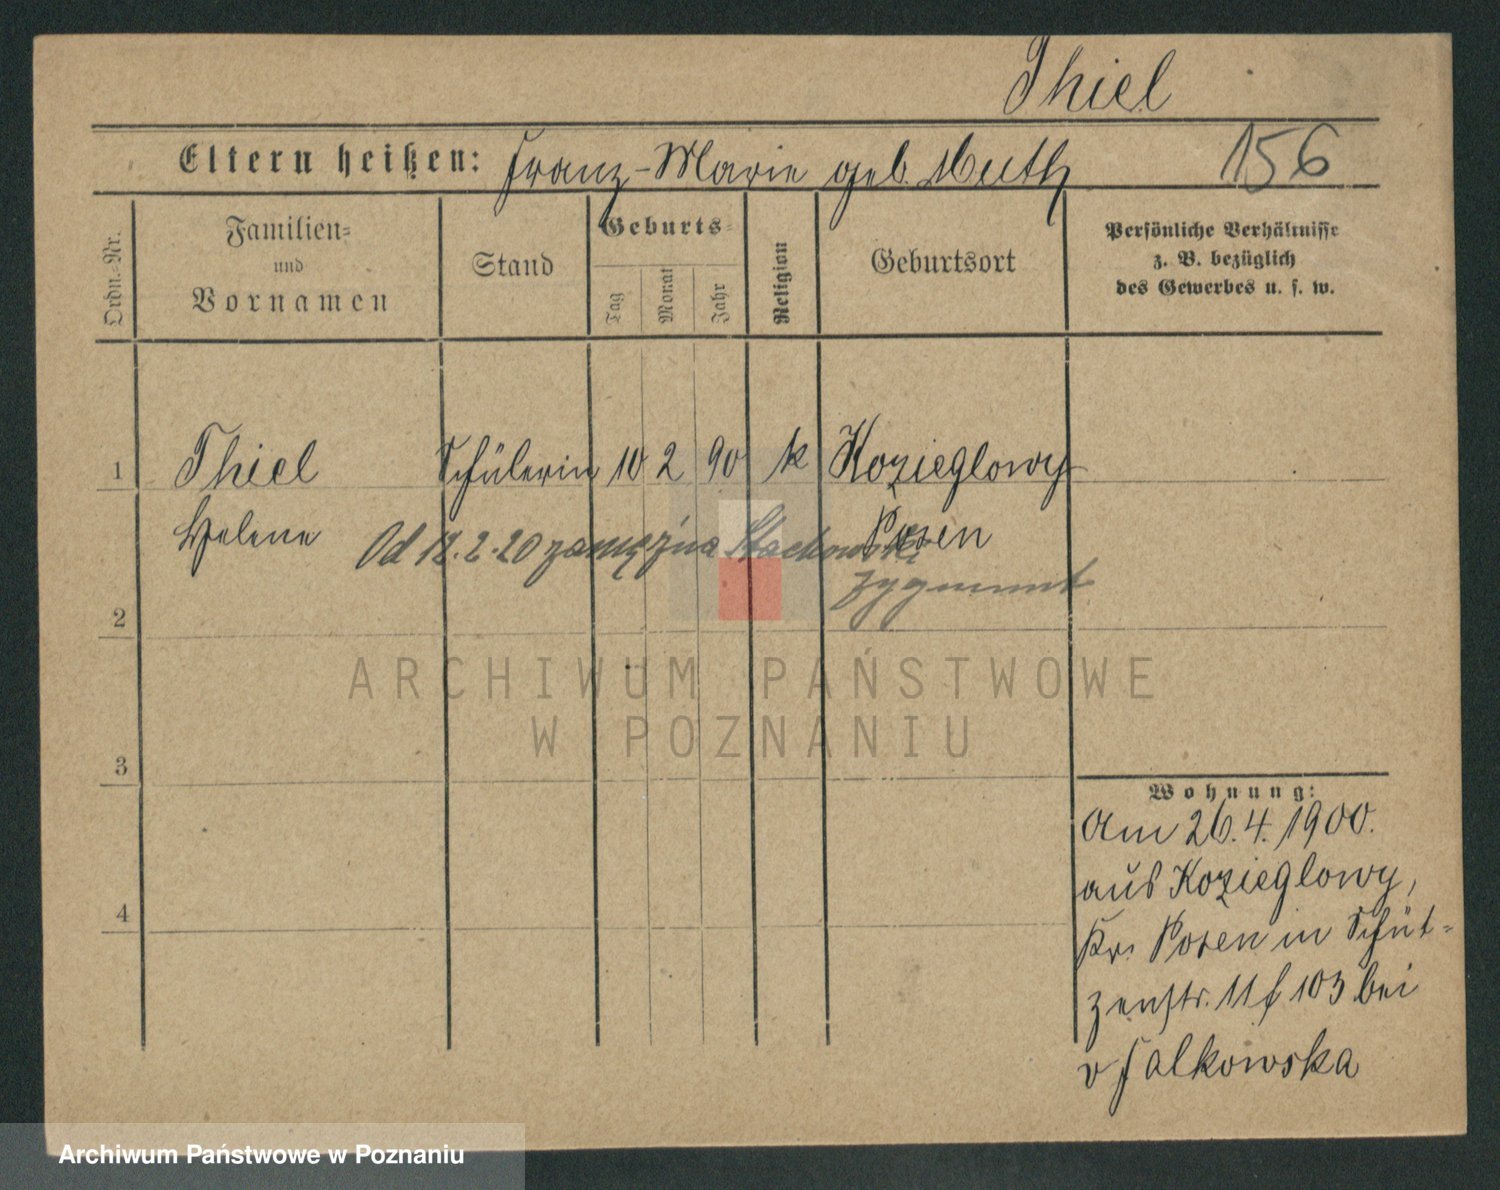 Thiel
Eltern heißen: Franz-Marie geb. Muth
156
Ordn.-Nr.
Familien-
und
Vornamen
Stand
Geburts-
Tag
Monat
Jahr
Religion
Geburtsort
Persönliche Verhältnisse
z. B. bezüglich
des Gewerbes u. s. w.
1 Thiel Schülerin 10 2 90 k Kozieglowy
Helene Posen
Od 12.2.20 zamężna Stachowski
Zygmunt
2
ARCHIWUM PAŃSTWOWE
W POZNANIU
3
4
Wohnung:
Am 26.4.1900.
aus Kozieglowy,
Kr. Posen in Schüt-
zenstr. 11 f 103 bei
v Falkowska
Archiwum Państwowe w Poznaniu